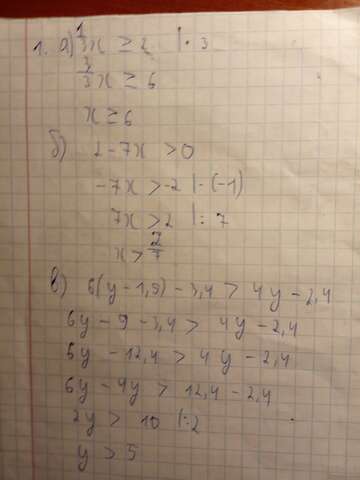 1. а) 1/3x ≥ 2 | · 3
3/3x ≥ 6
x ≥ 6
б) 2 - 7x > 0
-7x > -2 | · (-1)
7x > 2 | : 7
x > 2/7
в) 6(y - 1,5) - 3,4 > 4y - 2,4
6y - 9 - 3,4 > 4y - 2,4
6y - 12,4 > 4y - 2,4
6y - 4y > 12,4 - 2,4
2y > 10 | :2
y > 5